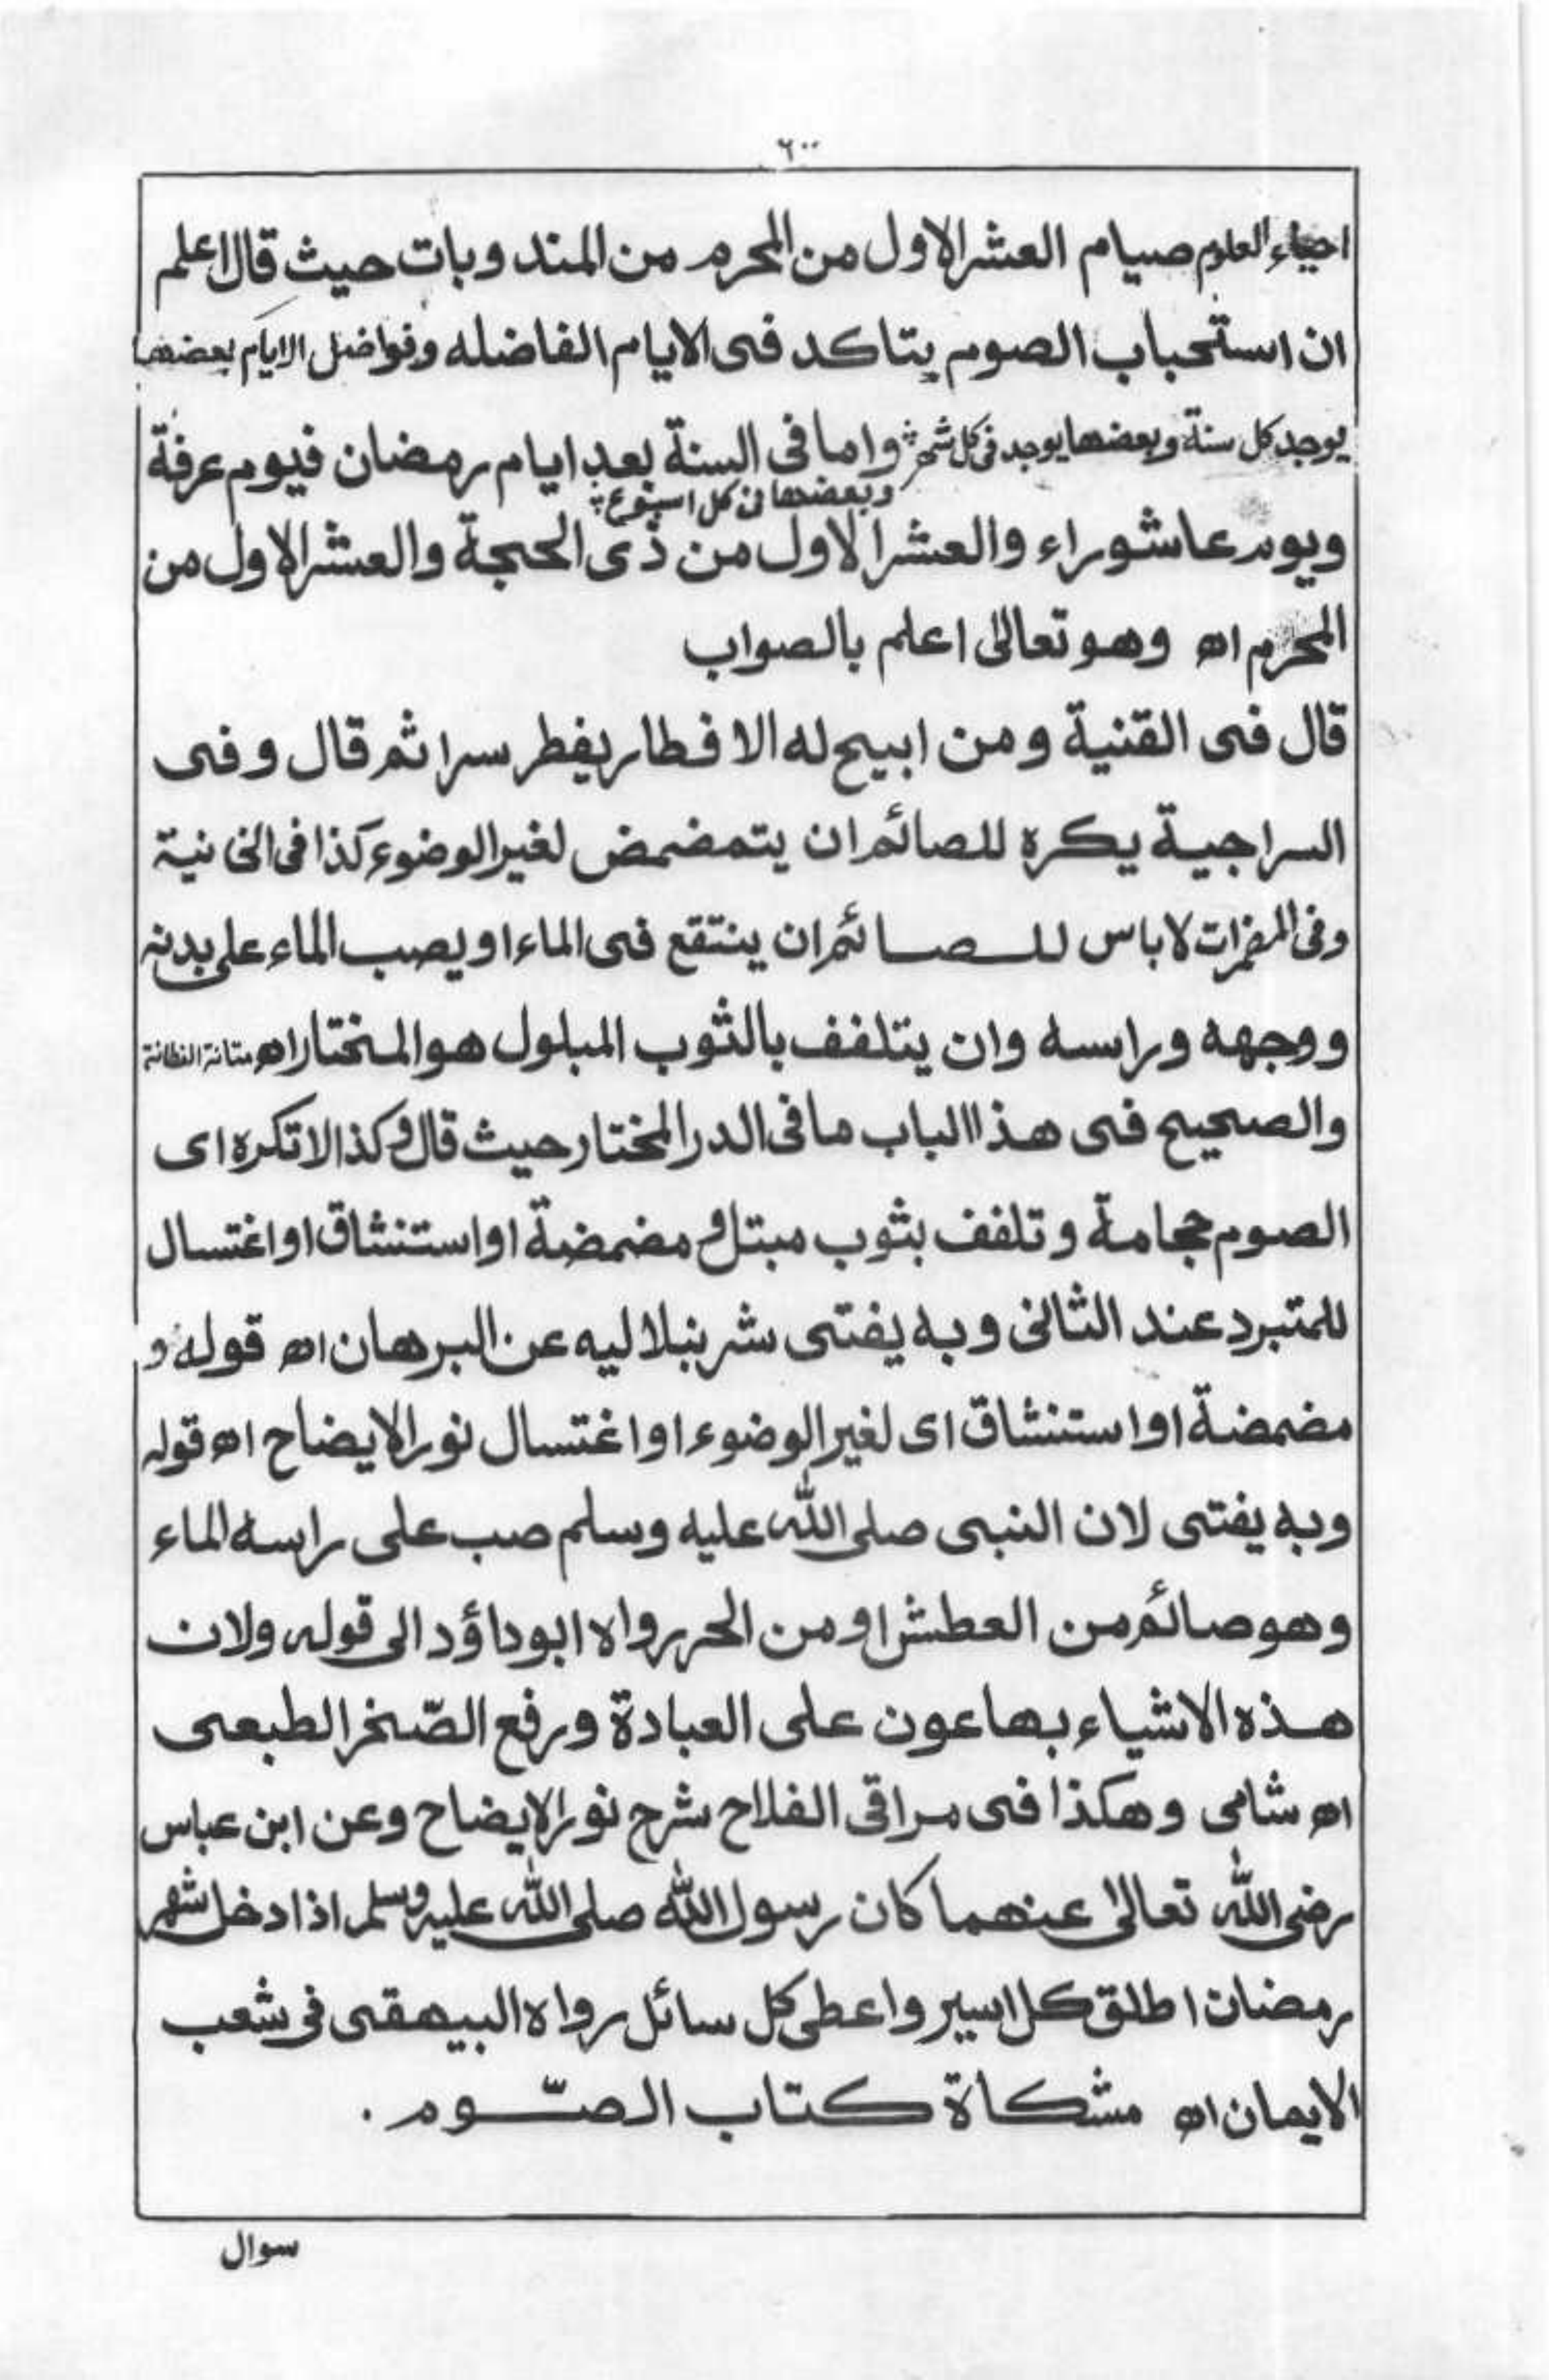 ٦٠٠
احياء العلوم صيام العشر الاول من المحرم من المندوبات حيث قال اعلم
ان استحباب الصوم يتاكد فى الايام الفاضله وفواضل الايام بعضها
يوجد كل سنة وبعضها يوجد فى كل شهر واما فى السنة بعد ايام رمضان فيوم عرفة
وبعضها فى كل اسبوع
ويوم عاشوراء والعشر الاول من ذى الحجة والعشر الاول من
المحرم اھ وهو تعالىٰ اعلم بالصواب
قال فى القنية ومن ابيح له الافطار يفطر سرا ثم قال وفى
السراجية يكره للصائم ان يتمضمض لغير الوضوء كذا فى الخانية
وفى المضمرات لاباس للصائم ان ينتقع فى الماء او يصب الماء على بدنه
ووجهه وراسه وان يتلفف بالثوب المبلول هو المختار اھ متانة
والصحيح فى هذا الباب ما فى الدر المختار حيث قال وكذا لاتكره اى
الصوم حجامة وتلفف بثوب مبتل ومضمضة او استنشاق او اغتسال
للمتبرد عند الثانى وبه يفتى شرنبلاليه عن البرهان اھ قوله و
مضمضة او استنشاق اى لغير الوضوء او اغتسال نور الايضاح اھ قوله
وبه يفتى لان النبى صلى الله عليه وسلم صب على راسه الماء
وهو صائم من العطش او من الحر رواه ابوداؤد الى قوله ولان
هذه الاشياء بها عون على العبادة ورفع الضّخر الطبعى
اھ شامى وهكذا فى مراقى الفلاح شرح نور الايضاح وعن ابن عباس
رضى الله تعالىٰ عنهما كان رسول الله صلى الله عليه وسلم اذا دخل شهر
رمضان اطلق كل اسير واعطى كل سائل رواه البيهقى فى شعب
الايمان اھ مشكاة كتاب الصّوم .
سوال